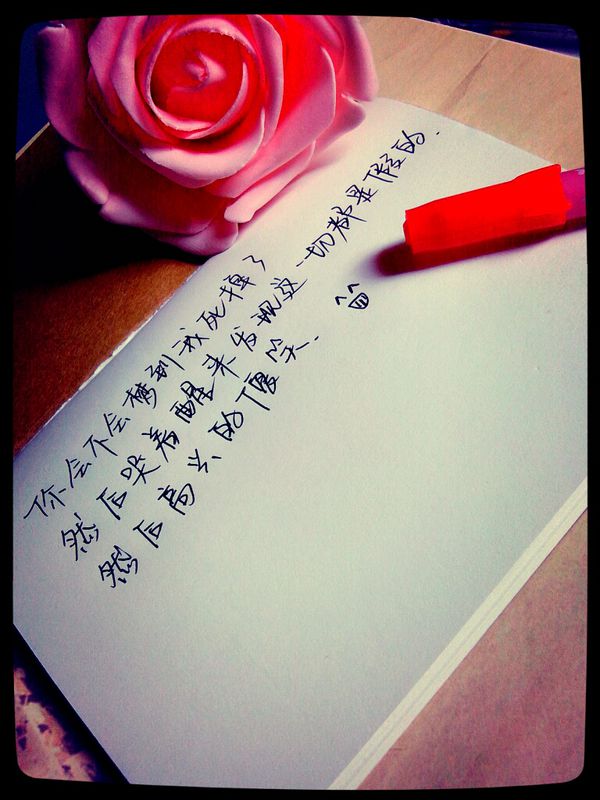 你会不会梦到我死掉了
然后哭着醒来发现这一切都是假的.
然后高兴的傻笑.